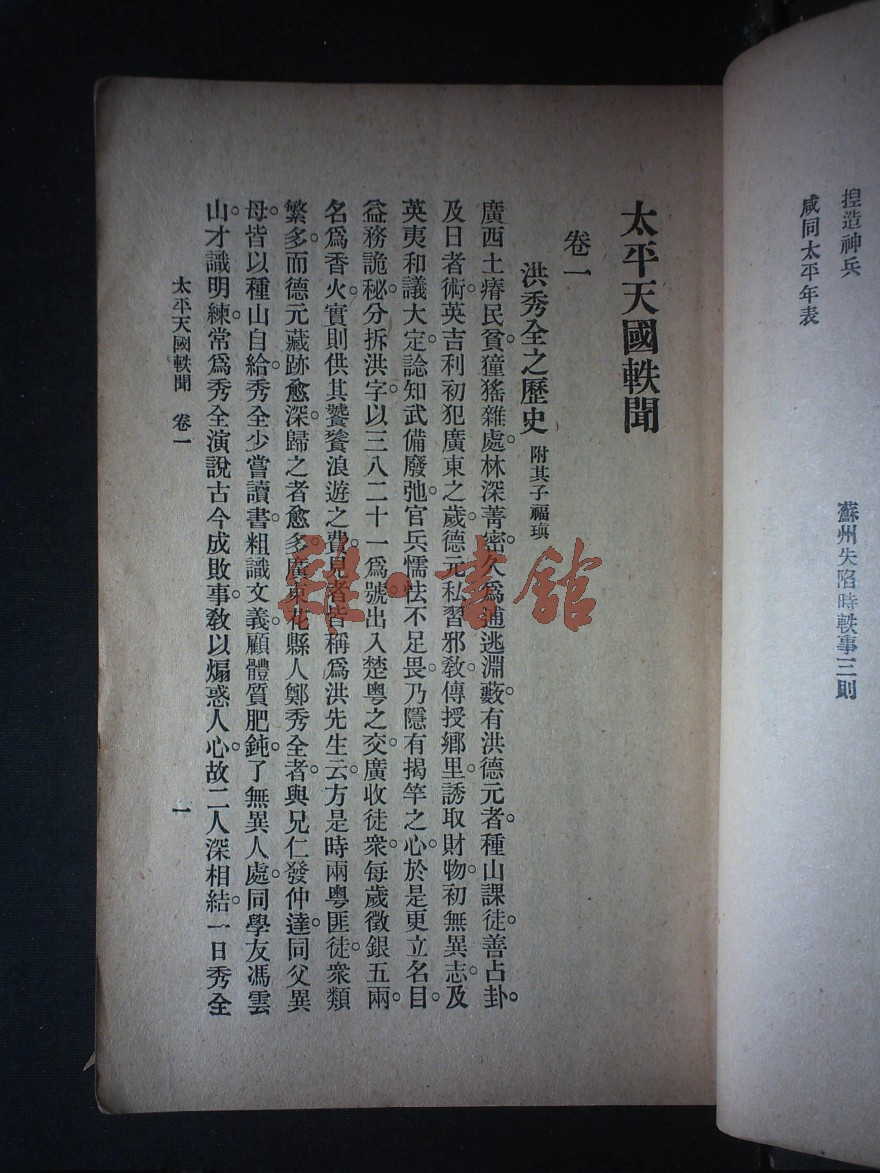 捏造神兵
蘇州失陷時軼事三則
咸同太平年表
太平天國軼聞
卷一
洪秀全之歷史 附其子福瑱
廣西土瘠民貧。獞猺雜處。林深菁密。久爲逋逃淵藪。有洪德元者。種山課徒。善占卦。
及日者術。英吉利初犯廣東之歲。德元私習邪教。傳授鄉里。誘取財物。初無異志。及
英夷和議大定。諗知武備廢弛。官兵懦怯不足畏。乃隱有揭竿之心。於是更立名目。
益務詭秘。分拆洪字。以三八二十一爲號。出入楚粵之交。廣收徒衆。每歲徵銀五兩。
名爲香火。實則供其饕餮浪遊之費。見者皆稱爲洪先生云。方是時兩粵匪徒。衆類
繁多。而德元藏跡愈深。歸之者愈多。廣東花縣人鄭秀全者。與兄仁發仲達。同父異
母。皆以種山自給。秀全少嘗讀書。粗識文義。顧體質肥鈍。了無異人處。同學友馮雲
山。才識明練。常爲秀全演說古今成敗事。教以煽惑人心。故二人深相結。一日秀全
太平天國軼聞 卷一
一
雜·書館